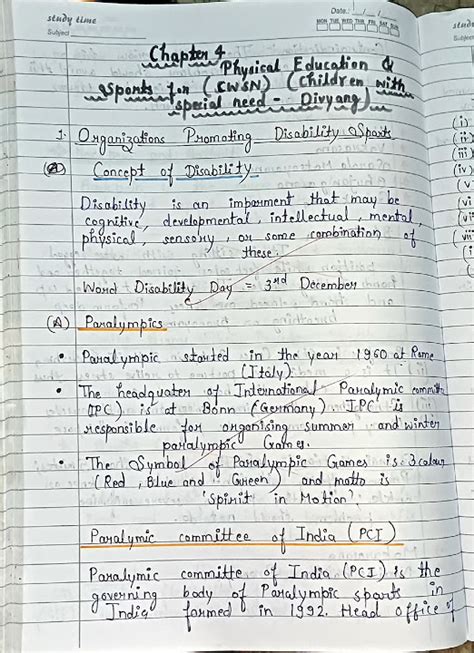 study time
Subject
Date: / /
MON TUE WED THU FRI SAT SUN
Chapter 4
Physical Education &
Sports for (CWSN) (Children with
special need - Divyang)
1. Organizations Promoting Disability Sports
Concept of Disability
Disability is an imparment that may be
cognitive, developmental, intellectual, mental,
physical, sensory, or some combination of
these.
Word Disability Day = 3rd December
(A) Paralympics
• Paralympic started in the year 1960 at Rome
(Italy)
• The headquater of International Paralymic committe
(IPC) is at Bonn (Germany) IPC is
responsible for organising summer and winter
paralympic Games.
• The Symbol of Paralympic Games is 3 colour
(Red, Blue and Green) and motto is
'Spirit in Motion'.
Paralymic committee of India (PCI)
Paralymic committe of India (PCI) is the
governing body of Paralympic sports in
India formed in 1992. Head office of
study
Subject
(i)
(ii)
(iii)
(iv)
(v
(vi
(vii
(viii
(i
(